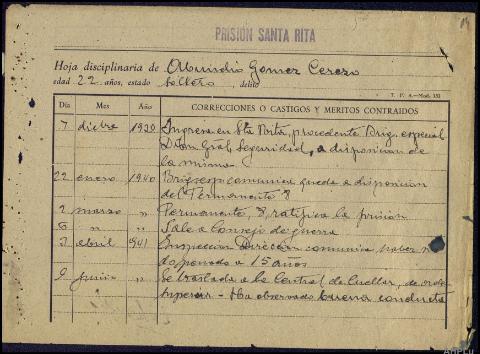 PRISIÓN SANTA RITA
Hoja disciplinaria de Gomez Cerezo
edad 22 años, estado soltero, delito
T. P. A.—Mod. 131
Día Mes Año CORRECCIONES O CASTIGOS Y MERITOS CONTRAIDOS
7 dicbre 1939 Ingresa en Sta Rita, procedente Brig. especial
Dtom Gral Seguridad, a disposicion de
la misma
22 enero 1940 Brig. esp. comunica queda a disposicion
del Permanente 8
2 marzo " Permanente, 8, ratifica la prisión
6 " " Sale a Consejo de guerra
3 abril 941 Inspeccion Dirección comunica haber
a 15 años
9 junio " Se traslada a la Central de Cuellar, de orden
superior - Ha observado buena conducta